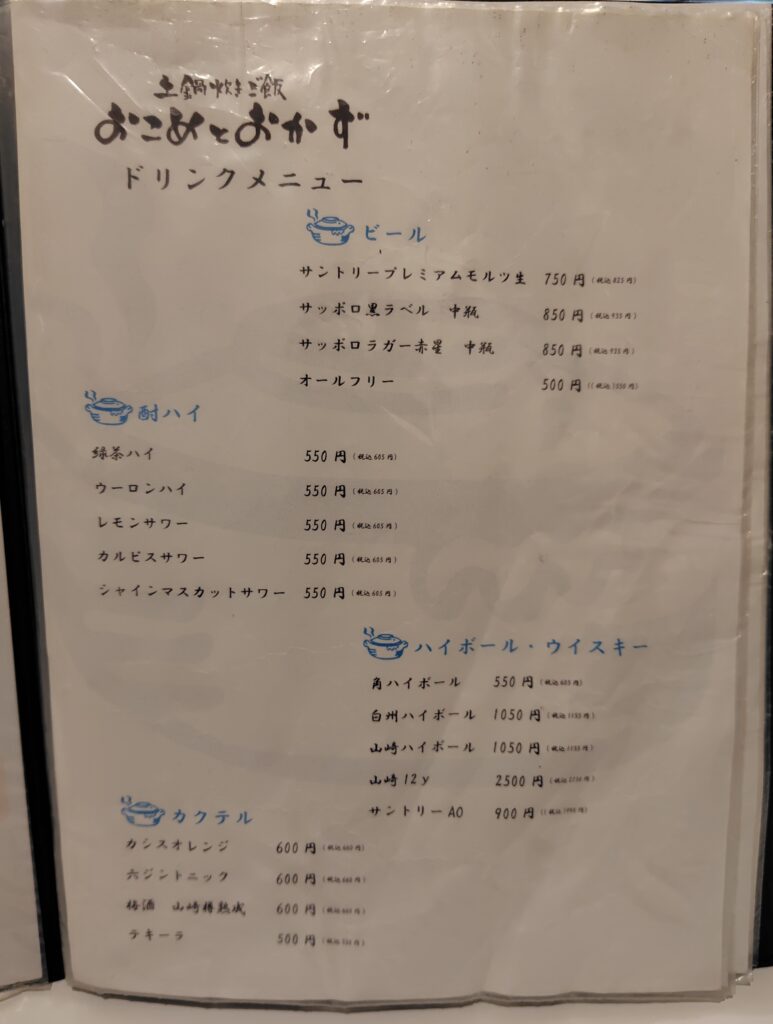 土鍋炊きご飯
おこめとおかず
ドリンクメニュー
ビール
サントリープレミアムモルツ生 750円(税込825円)
サッポロ黒ラベル 中瓶 850円(税込935円)
サッポロラガー赤星 中瓶 850円(税込935円)
オールフリー 500円((税込1050円)
酎ハイ
緑茶ハイ 550円(税込605円)
ウーロンハイ 550円(税込605円)
レモンサワー 550円(税込605円)
カルピスサワー 550円(税込605円)
シャインマスカットサワー 550円(税込605円)
ハイボール・ウイスキー
角ハイボール 550円(税込605円)
白州ハイボール 1050円(税込1155円)
山崎ハイボール 1050円(税込1155円)
山崎12y 2500円(税込
サントリーAO 900円((税込
カクテル
カシスオレンジ 600円(税込660円)
六ジントニック 600円(税込660円)
梅酒 山崎樽熟成 600円(税込660円)
テキーラ 500円(税込